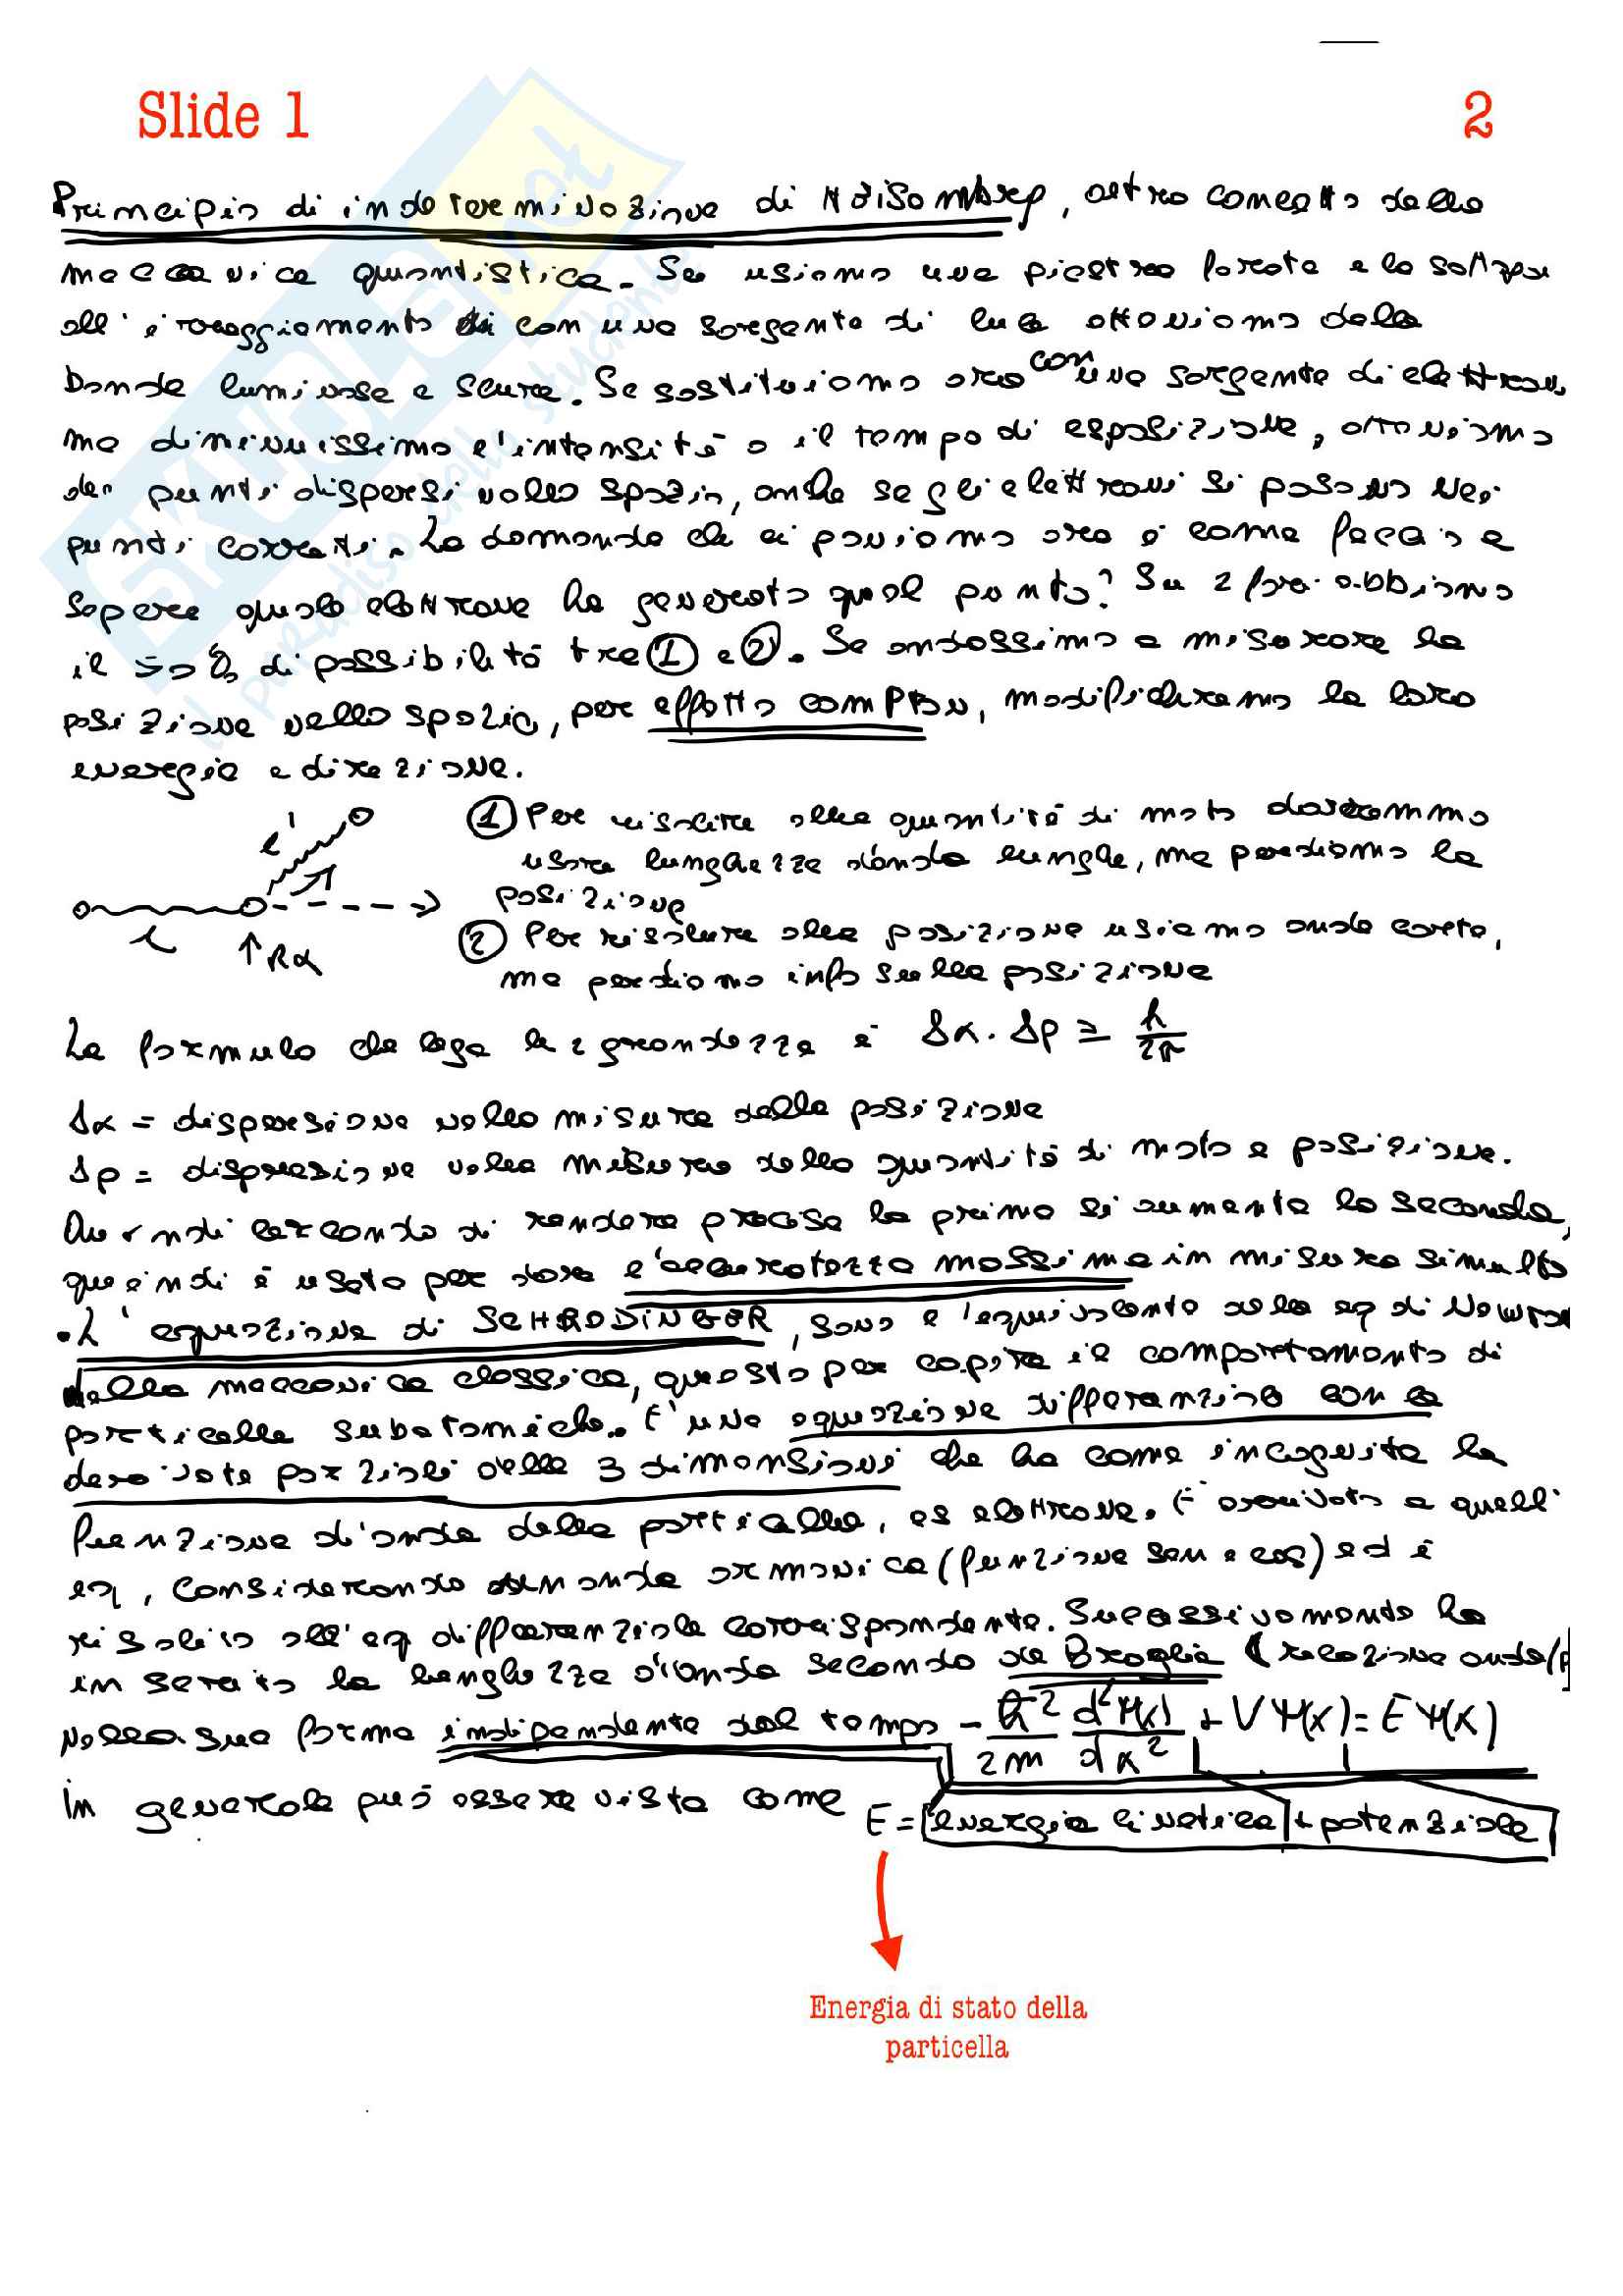 Slide 1
2
Principio di indeterminazione di Heisenberg, altro concetto della
meccanica quantistica. Se usiamo una piastra forata e la
all'irraggiamento con una sorgente di luce otteniamo delle
bande luminose e scure. Se sostituiamo ora con una sorgente di elettroni
ma diminuissimo l'intensità o il tempo di esposizione, otteniamo
dei punti dispersi nello spazio, anche se gli elettroni si posano nei
punti corretti. La domanda che ci poniamo ora è come faccio a
sapere quale elettrone ha generato quel punto? Su 2 fori abbiamo
il 50% di possibilità tra 1 e 2. Se andassimo a misurare la
posizione nello spazio, per effetto compton, modificheremo la loro
energia e direzione.
λ'
λ
1 Per risalire alla quantità di moto dovremmo
usare lunghezze d'onda lunghe, ma perdiamo la
posizione
2 Per risalire alla posizione usiamo onde corte,
ma perdiamo info sulla posizione
La formula che lega le 2 grandezze è Δx · Δp ≥ h/2π
Δx = dispersione nella misura della posizione
Δp = dispersione nella misura della quantità di moto e posizione.
Quindi cercando di rendere precisa la prima si aumenta la seconda,
quindi è usato per dare l'accuratezza massima in misura simulta
• L'equazione di SCHRODINGER, sono l'equivalente della eq di Newton
della meccanica classica, questo per capire il comportamento di
particelle subatomiche. E' una equazione differenziale con le
derivate parziali delle 3 dimensioni che ha come incognita la
funzione d'onda della particella, es elettrone. È arrivato a quell'
eq, considerando un onda armonica (funzione sen e cos) ed è
risalito all'eq differenziale corrispondente. Successivamente ha
inserito la lunghezza d'onda secondo de Broglie (relazione onda/p
Nella sua forma indipendente dal tempo -ℏ²/2m d²Ψ(x)/dx² + VΨ(x) = EΨ(x)
In generale può essere vista come E = energia cinetica + potenziale
Energia di stato della
particella